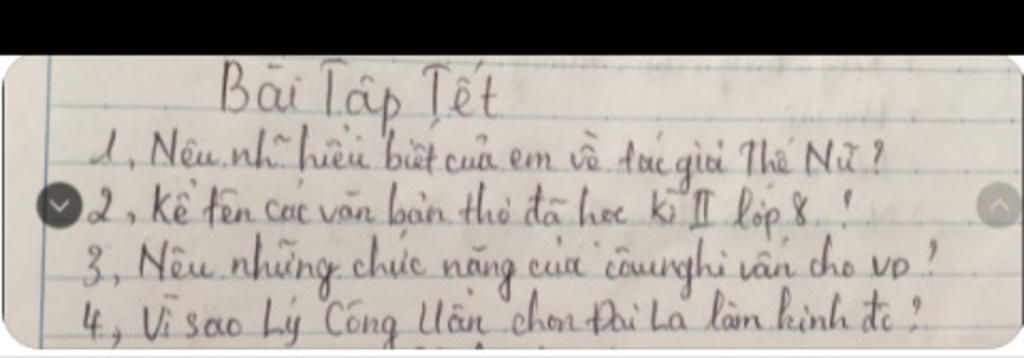 Bài Tập Tết
1, Nêu nh~ hiểu biết của em về tác giả Thế Nữ?
2, Kể tên các văn bản thơ đã học kì II lớp 8?
3, Nêu những chức năng của câu nghi vấn cho VD?
4, Vì sao Lý Công Uẩn chọn Đại La làm kinh đô?